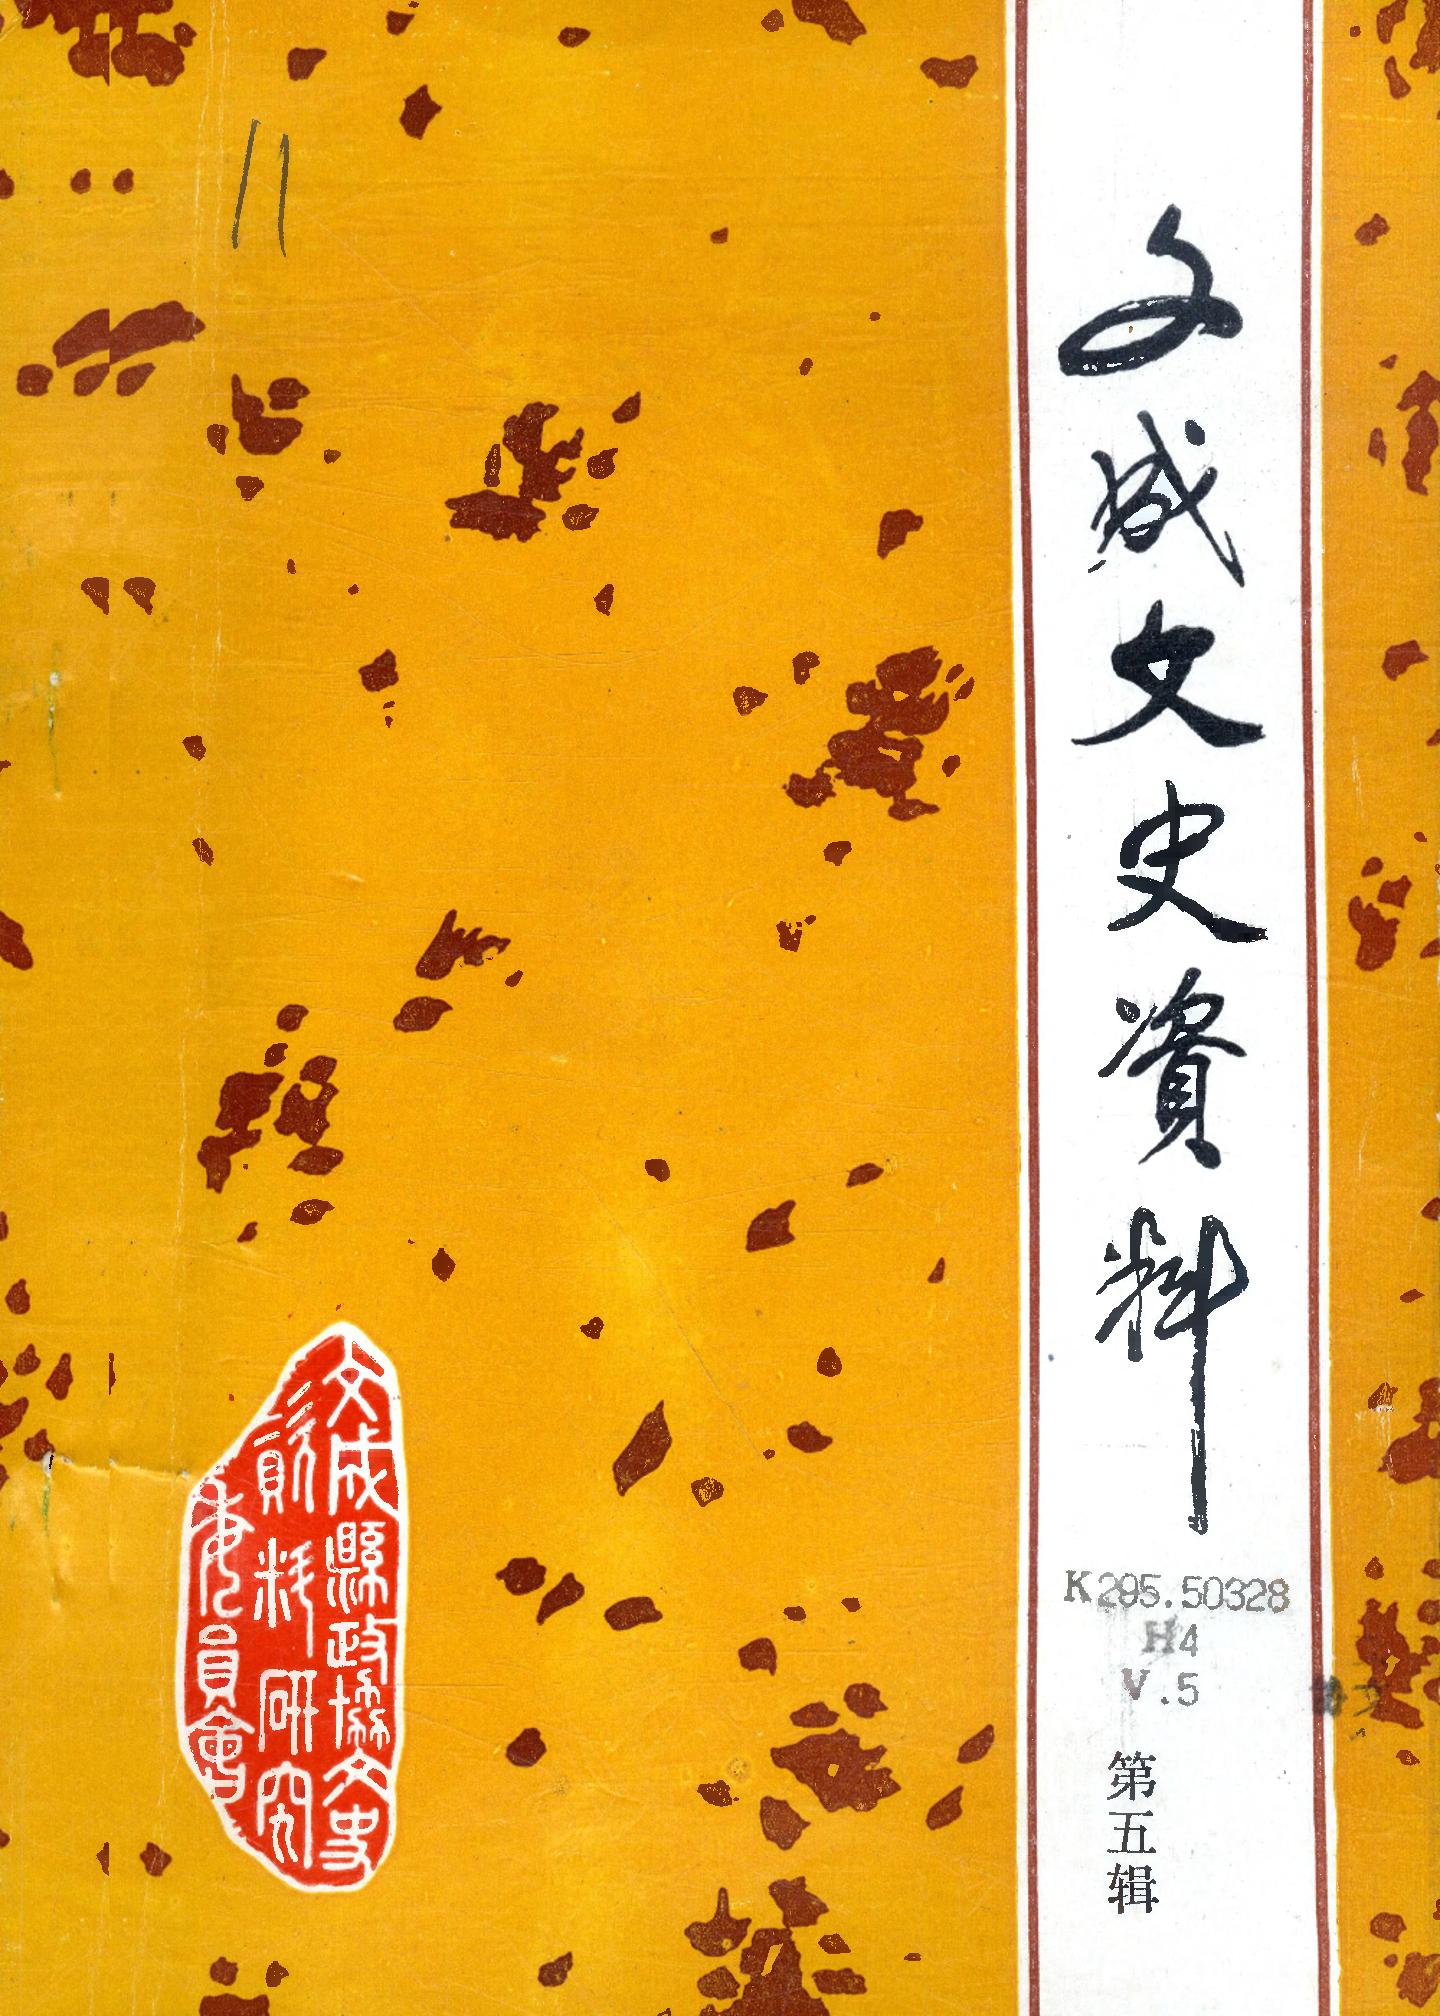 文成文史资料
第五辑
K295.50328
H4
V.5
文成縣政協文史
資料研究
委員會
11